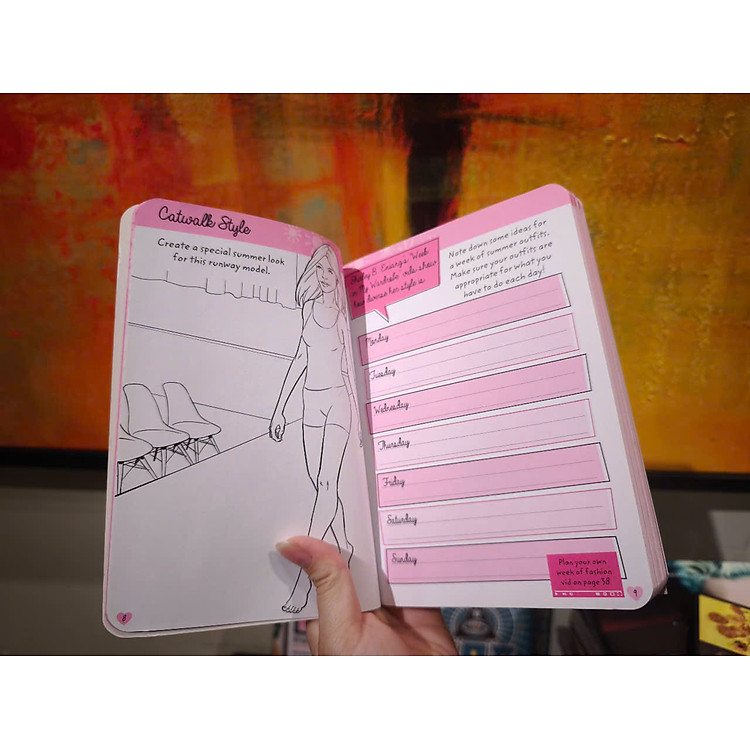 Catwalk Style
Create a special summer look
for this runway model.
8
B. Loving's Week
in My Wardrobe vids show
how diverse her style is
Note down some ideas for
a week of summer outfits.
Make sure your outfits are
appropriate for what you
have to do each day!
Monday
Tuesday
Wednesday
Thursday
Friday
Saturday
Sunday
Plan your own
week of fashion
vid on page 38
9